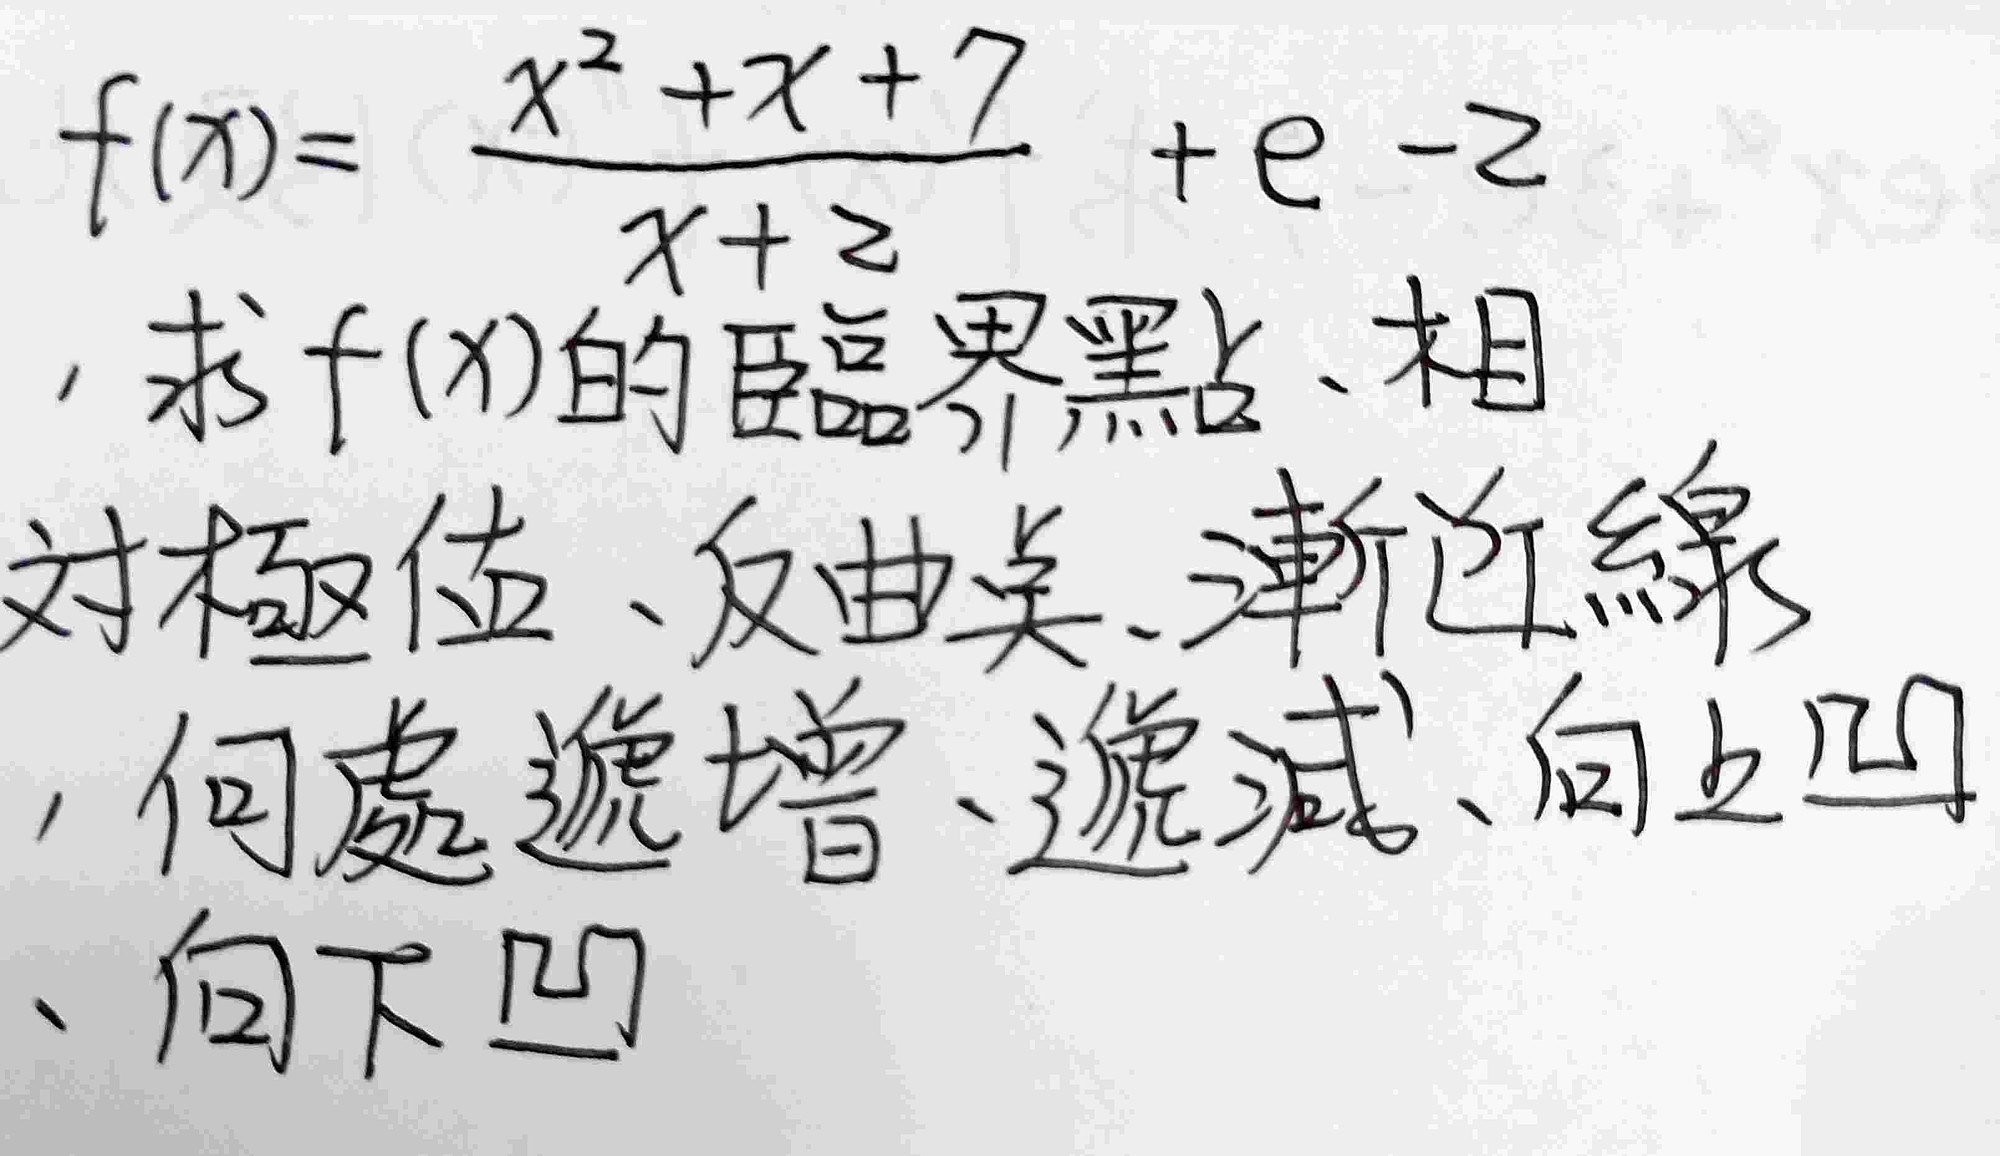 f(x)= (x²+x+7)/(x+2) +e-2
,求f(x)的臨界點、相
対極值、反曲点、漸近線
,何處遞增、遞減、向上凹
、向下凹